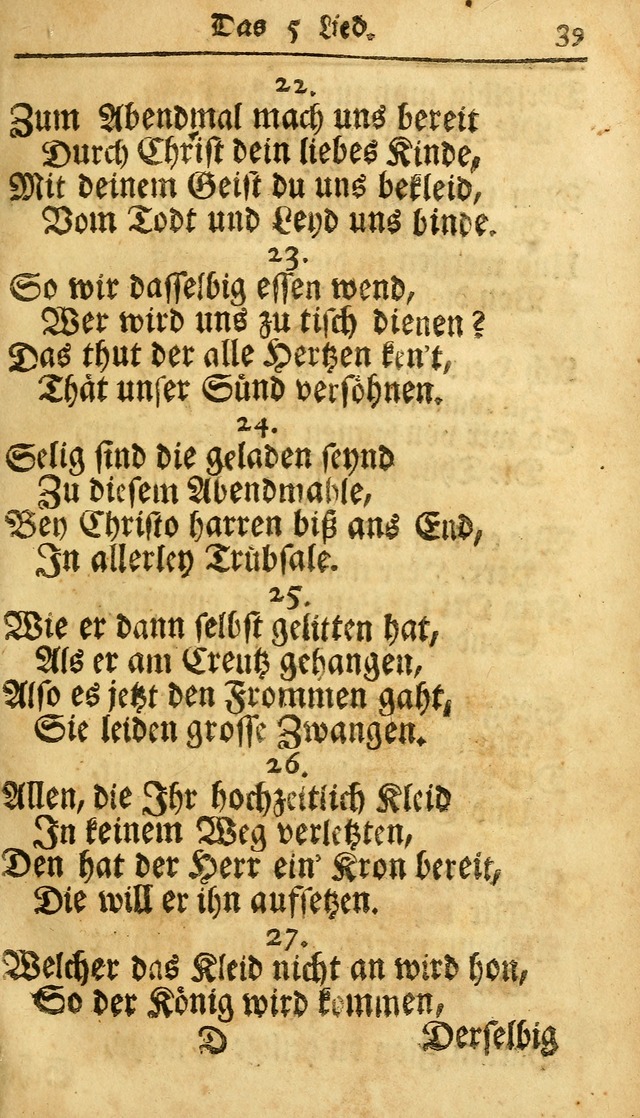 Das 5 Lied. 39
22.
Zum Abendmal mach uns bereit
Durch Christ dein liebes Kinde,
Mit deinem Geist du uns bekleid,
Vom Todt und Leyd uns binde.
23.
So wir dasselbig essen wend,
Wer wird uns zu tisch dienen?
Das thut der alle Hertzen ken't,
Thåt unser Sůnd versöhnen.
24.
Selig sind die geladen seynd
Zu diesem Abendmahle,
Bey Christo harren biß ans End,
In allerley Trůbsale.
25.
Wie er dann selbst gelitten hat,
Als er am Creutz gehangen,
Also es jetzt den Frommen gaht,
Sie leiden grosse Zwangen.
26.
Allen, die Ihr hochzeitlich Kleid
In keinem Weg verletzten,
Den hat der Herr ein' Kron bereit,
Die will er ihn aufsetzen.
27.
Welcher das Kleid nicht an wird hon,
So der König wird kommen,
D Derselbig